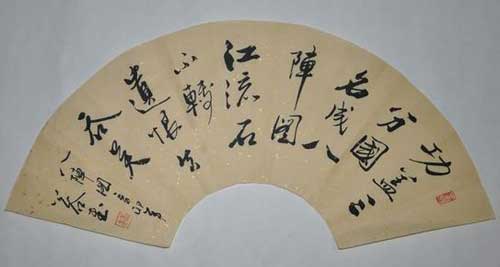 功蓋三
分國
名成八
陣圖
江流石
不轉
遺恨失
吞吳
八陣圖